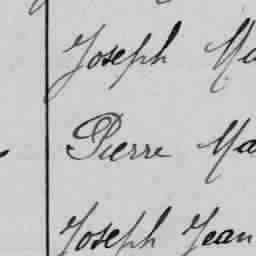 Joseph Ma
Pierre Ma
Joseph Jean